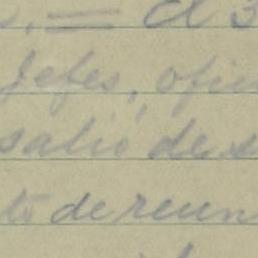 = El 3
Jefes, ofici
salió de s
to de reun